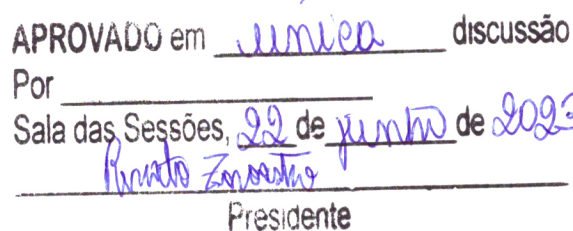 APROVADO em unica discussão
Por
Sala das Sessões, 22 de junho de 2023
Presidente